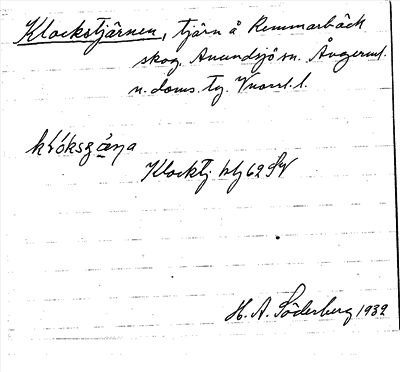 Klockstjärnen, tjärn å Remmarbäck
skog, Anundsjö sn. Ångerml.
n. doms. tg. Vnorrl. l.
Klocktj. blj 62 SV
H. A. Söderberg 1932